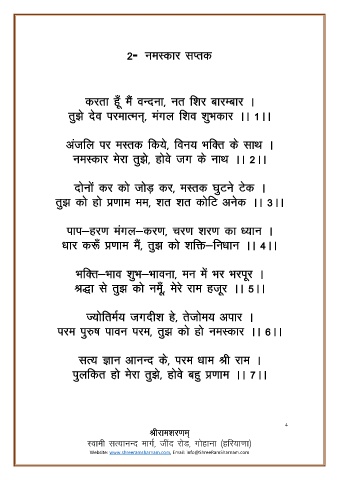 2- नमस्कार सप्तक
करता हूँ मैं वन्दना, नत शिर बारम्बार ।
तुझे देव परमात्मन्, मंगल शिव शुभकार ।। 1।।
अंजलि पर मस्तक किये, विनय भक्ति के साथ ।
नमस्कार मेरा तुझे, होवे जग के नाथ ।। 2।।
दोनों कर को जोड़ कर, मस्तक घुटने टेक ।
तुझ को हो प्रणाम मम, शत शत कोटि अनेक ।। 3।।
पाप-हरण मंगल-करण, चरण शरण का ध्यान ।
धार करूँ प्रणाम मैं, तुझ को शक्ति-निधान ।। 4।।
भक्ति-भाव शुभ-भावना, मन में भर भरपूर ।
श्रद्धा से तुझ को नमूँ, मेरे राम हजूर ।। 5।।
ज्योतिर्मय जगदीश हे, तेजोमय अपार ।
परम पुरुष पावन परम, तुझ को हो नमस्कार ।। 6।।
सत्य ज्ञान आनन्द के, परम धाम श्री राम ।
पुलकित हो मेरा तुझे, होवे बहु प्रणाम ।। 7।।
4
श्रीरामशरणम्
स्वामी सत्यानन्द मार्ग, जींद रोड, गोहाना (हरियाणा)
Website: www.shreeramsharnam.com, Email: info@shreeramsharnam.com